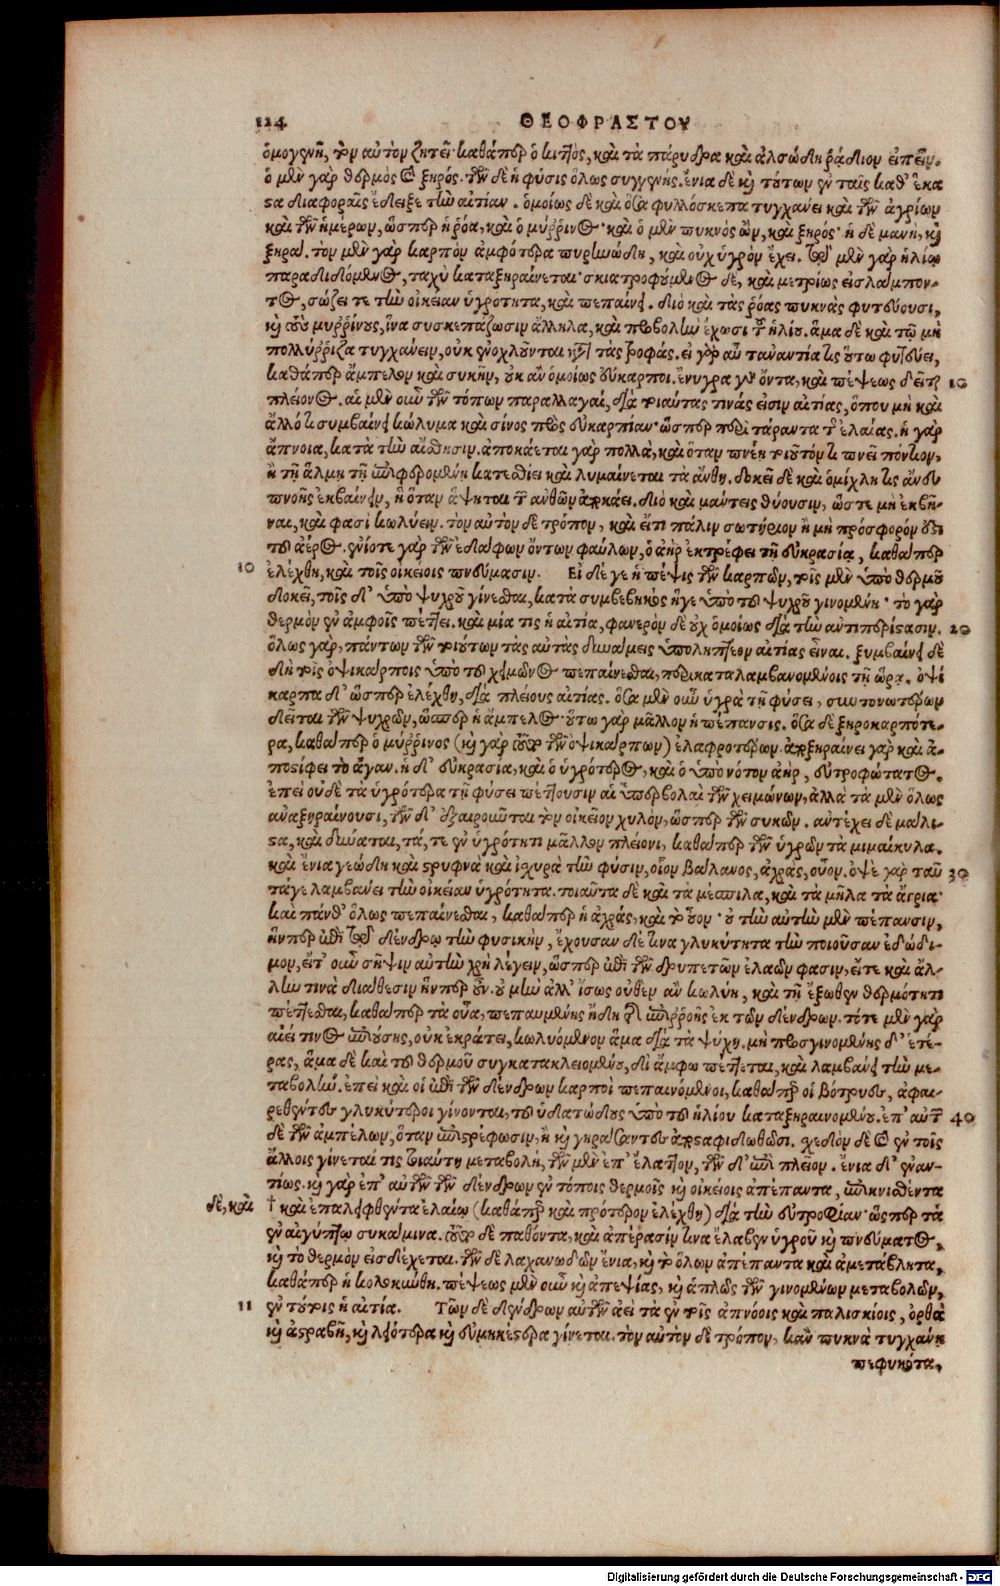 124 ΘΕΟΦΡΑΣΤΟΥ
ὁμογενῆ, τὸν αὐτὸν ζητεῖ· καθάπερ ὁ κιττὸς, καὶ τὰ πάρυδρα καὶ ἀλσώδη ῥάδιον εἰπεῖν.
ὁ μὲν γὰρ θερμὸς καὶ ξηρός. τῶν δὲ ἡ φύσις ὅλως συγγενής. ἔνια δὲ καὶ τούτων ἐν ταῖς καθ' ἕκα
στα διαφοραῖς ἔδειξε τὴν αἰτίαν. ὁμοίως δὲ καὶ ὅσα φυλλόσκεπα τυγχάνει καὶ τῶν ἀγρίων
καὶ τῶν ἡμερων, ὥσπερ ἡ ῥόα, καὶ ὁ μύῤῥινος· καὶ ὁ μὲν πυκνὸς ὢν, καὶ ξηρός· ἡ δὲ μανὴ, καὶ
ξηρά. τὸν μὲν γὰρ καρπὸν ἀμφότερα πυρινώδη, καὶ οὐχ ὑγρὸν ἔχει. τῷ μὲν γὰρ ἡλίῳ
παραδιδόμενος, ταχὺ καταξηραίνεται· σκιατροφούμενος δὲ, καὶ μετρίως εἰσλάμπον-
τος, σώζει τε τὴν οἰκείαν ὑγρότητα, καὶ πεπαίνει. διὸ καὶ τὰς ῥόας πυκνὰς φυτεύουσι,
καὶ τοὺς μυῤῥίνους, ἵνα συσκεπάζωσιν ἄλληλα, καὶ προβολὴν ἔχωσι τοῦ ἡλίου. ἅμα δὲ καὶ τῷ μὴ
πολλύῤῥιζα τυγχάνειν, οὐκ ἐνοχλοῦνται κατὰ τὰς τροφάς. εἰ γὰρ αὖ τἀναντία τις οὕτω φυτεύει,
καθάπερ ἄμπελον καὶ συκῆν, οὐκ ἂν ὁμοίως εὔκαρποι. ἔνυγρα γὰρ ὄντα, καὶ πέψεως δεῖται 10
πλείονος. αἱ μὲν οὖν τῶν τόπων παραλλαγαὶ, διὰ τοιαύτας τινάς εἰσιν αἰτίας, ὅπου μὴ καὶ
ἄλλό τι συμβαίνει κώλυμα καὶ σίνος πρὸς εὐκαρπίαν· ὥσπερ περὶ τάραντα τὸ ἐλαίας. ἡ γὰρ
ἄπνοια, κατὰ τὴν αἴσθησιν. ἀποκάεται γὰρ πολλὰ, καὶ ὅταν πνέῃ τοιοῦτόν τι πνεῖ πόντιον,
ἢ τῇ ἅλμῃ τῇ ἐπιφερομένῃ κατεσθίει καὶ λυμαίνεται τὰ ἄνθη. δοκεῖ δὲ καὶ ὁμίχλη τις ἄνευ
πνοῆς ἐκβαίνειν, ἣ ὅταν ἅψηται τῶν ἀνθῶν ἀποκάει. διὸ καὶ μάντεις θύουσιν, ὥστε μὴ ἐκβῆ-
ναι, καὶ φασὶ κωλύειν. τὸν αὐτὸν δὲ τρόπον, καὶ εἴτι πάλιν σωτήριον ἢ μὴ πρόσφορόν ἐστι
τοῦ ἀέρος. ἐνίοτε γὰρ τῶν ἐδαφῶν ὄντων φαύλων, ὁ ἀὴρ ἐκτρέφει τῇ εὐκρασίᾳ, καθάπερ
10 ἐλέχθη, καὶ τοῖς οἰκείοις πνεύμασιν. Εἰ δέ γε ἡ πέψις τῶν καρπῶν, τοῖς μὲν ὑπὸ θερμοῦ
δοκεῖ, τοῖς δ' ὑπὸ ψυχροῦ γίνεσθαι, κατὰ συμβεβηκὸς ἥγε ὑπὸ τοῦ ψυχροῦ γινομένη· τὸ γὰρ
θερμὸν ἐν ἀμφοῖν πέττει. καὶ μία τις ἡ αἰτία, φανερὸν δὲ οὐχ ὁμοίως διὰ τὴν ἀντιπερίστασιν. 20
ὅλως γὰρ, πάντων τῶν τοιούτων τὰς αὐτὰς δυνάμεις ὑποληπτέον αἰτίας εἶναι. ξυμβαίνει δὲ
δὴ τοῖς ὀψικάρποις ὑπὸ τοῦ χειμῶνος πεπαίνεσθαι, περικαταλαμβανομένοις τῇ ὥρᾳ. ὀψί
καρπα δ' ὥσπερ ἐλέχθη, διὰ πλείους αἰτίας. ὅσα μὲν οὖν ὑγρὰ τῇ φύσει, συντονωτέρων
δεῖται τῶν ψυχρῶν, ὥσπερ ἡ ἄμπελος· οὕτω γὰρ μᾶλλον ἡ πέπανσις. ὅσα δὲ ξηροκαρπότε-
ρα, καθάπερ ὁ μύῤῥινος (καὶ γὰρ οὗτος τῶν ὀψικάρπων) ἐλαφροτέρων. ἀποξηραίνει γὰρ καὶ ἀ-
ποστίφει τὸ ἄγαν. ἡ δ' εὐκρασία, καὶ ὁ ὑγρότερος, καὶ ὁ ὑπονότον ἀὴρ, εὐτροφώτατος.
ἐπεὶ οὐδὲ τὰ ὑγρότερα τῇ φύσει πέττουσιν αἱ ὑπερβολαὶ τῶν χειμώνων, ἀλλὰ τὰ μὲν ὅλως
ἀναξηραίνουσι, τῶν δ' ἐξαιροῦνται τὸν οἰκεῖον χυλὸν, ὥσπερ τῶν συκῶν. ἀντέχει δὲ μάλι-
στα, καὶ δύναται, τά, τε ἐν ὑγρότητι μᾶλλον πλείονι, καθάπερ τῶν ὑγρῶν τὰ μιμαίκυλα.
καὶ ἔνια γεώδη καὶ στρυφνὰ καὶ ἰσχυρὰ τὴν φύσιν, οἷον βάλανος, ἀχρὰς, οὖον. ὀψὲ γὰρ ταῦ 30
τάγε λαμβάνει τὴν οἰκείαν ὑγρότητα. τοιαῦτα δὲ καὶ τὰ μέσπιλα, καὶ τὰ μῆλα τὰ ἄγρια·
καὶ πάνθ' ὅλως πεπαίνεσθαι, καθάπερ ἡ ἀχρὰς, καὶ τὸ οὖον· οὐ τὴν αὐτὴν μὲν πέπανσιν,
ἥνπερ ἐπὶ τῷ δένδρῳ τὴν φυσικὴν, ἔχουσαν δέ τινα γλυκύτητα τὴν ποιοῦσαν ἐδώδι-
μον, εἴτ' οὖν σῆψιν αὐτὴν χρὴ λέγειν, ὥσπερ ἐπὶ τῶν δρυπετῶν ἐλαῶν φασιν, εἴτε καὶ ἄλ-
λην τινὰ διάθεσιν ἥνπερ οὖν. οὐ μὴν ἀλλ' ἴσως οὐθὲν ἂν κωλύῃ, καὶ τῇ ἔξωθεν θερμότητι
πέττεσθαι, καθάπερ τὰ οὖα, πεπαυμένης ἤδη τῆς ἐπιῤῥοῆς ἐκ τῶν δένδρων. τότε μὲν γὰρ
αἰεί τινος ἐπιούσης, οὐκ ἐκράτει, κωλυόμενον ἅμα διὰ τὰ ψύχη. μὴ προσγινομένης δ' ἑτέ-
ρας, ἅμα δὲ καὶ τοῦ θερμοῦ συγκατακλειομένου, δι' ἄμφω πέττεται, καὶ λαμβάνει τὴν με-
ταβολήν. ἐπεὶ καὶ οἱ ἐπὶ τῶν δένδρων καρποὶ πεπαινόμενοι, καθάπερ οἱ βότρυες, ἀφαι-
ρεθέντες γλυκύτεροι γίνονται, τοῦ ὑδατώδους ὑπὸ τοῦ ἡλίου καταξηραινομένου. ἐπ' αὐτῶν 40
δὲ τῶν ἀμπέλων, ὅταν ἐπιστρέφωσιν, ἢ καὶ γηράσαντες ἀποσταφιδωθῶσι. σχεδὸν δὲ καὶ ἐν τοῖς
ἄλλοις γίνεταί τις τοιαύτη μεταβολὴ, τῶν μὲν ἐπ' ἔλαττον, τῶν δ' ἐπὶ πλεῖον. ἔνια δ' ἐναν-
τίως. καὶ γὰρ ἐπ' αὐτῶν τῶν δένδρων ἐν τόποις θερμοῖς καὶ οἰκείοις ἀπέπαντα, ἐπικνισθέντα
δὲ, καὶ † καὶ ἐπαλειφθέντα ἐλαίῳ (καθάπερ καὶ πρότερον ἐλέχθη) διὰ τὴν εὐτροφίαν· ὥσπερ τὰ
ἐν αἰγύπτῳ συκάμινα. τοῦτο δὲ παθόντα, καὶ ἀπέρασίν τινα ἔλαβεν ὑγροῦ καὶ πνεύματος,
καὶ τὸ θερμὸν εἰσδέχεται. τῶν δὲ λαχανωδῶν ἔνια, καὶ τὸ ὅλων ἀπέπαντα καὶ ἀμετάβλητα,
καθάπερ ἡ κολοκύνθη. πέψεως μὲν οὖν καὶ ἀπεψίας, καὶ ἁπλῶς τῶν γινομένων μεταβολῶν,
11 ἐν τούτοις ἡ αἰτία. Τῶν δὲ δένδρων αὐτῶν ἀεὶ τὰ ἐν τοῖς ἀπνόοις καὶ παλισκίοις, ὀρθὰ
καὶ ἀστραβῆ, καὶ λειότερα καὶ εὐμηκέστερα γίνεται. τὸν αὐτὸν δὲ τρόπον, κἂν πυκνὰ τυγχάνῃ
πεφυκότα,
Digitalisierung gefördert durch die Deutsche Forschungsgemeinschaft - DFG